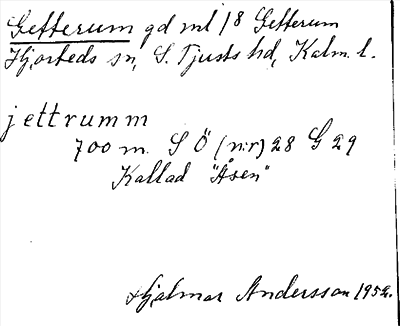 Getterum gd ml 18 Getterum
Hjorteds sn, S. Tjusts hd, Kalm. l.
jettrumm
700 m. S Ö (n:r) 28 G 29
Kallad "Åsen"
Hjalmar Andersson 1952.